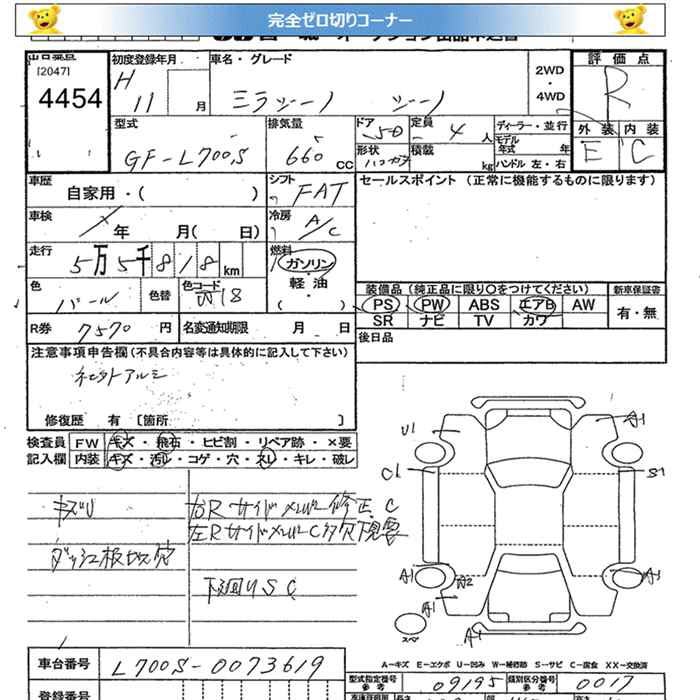 完全ゼロ切りコーナー
出品番号
[2047]
4454
初度登録年月
H 11 月
車名・グレード
ミラジーノ ジーノ
2WD
・
4WD
評価点
R
外装 内装
E C
型式
GF-L700S
排気量
660 CC
ドア 5D
形状 ハッチバック
定員 4 人
積載 kg
ディーラー・並行
モデル年式 年
ハンドル 左・右
車歴
自家用・( )
シフト FAT
セールスポイント (正常に機能するものに限ります)
車検
年 月( 日)
冷房 A/C
走行
5万5千818km
燃料
ガソリン
・
軽・油
( )
色
パール
色替
色コード
W18
装備品(純正品に限り○をつけてください)
新車保証書
PS PW ABS エアB AW
SR ナビ TV カワ
有・無
R券 7570 円
名変通知期限 月 日
後日品
注意事項申告欄(不具合内容等は具体的に記入して下さい)
社外アルミ
修復歴 有 [箇所 ]
検査員 FW キズ・飛石・ヒビ割・リペア跡・×要
記入欄 内装 キズ・汚レ・コゲ・穴・スレ・キレ・破レ
キズU
ダッシュ板切穴
右Rサイドメンバー修正.C
左RサイドメンバーC多穴下見要
下廻りSC
U1
A1
C1
S1
A1
A2
A3
A1
A1
スペア
A-キズ E-エクボ U-凹み W-補修跡 S-サビ C-腐食 XX-交換済
車台番号 L700S-0073619
型式指定番号 参考 09195
類別区分番号 参考 0017
登録番号